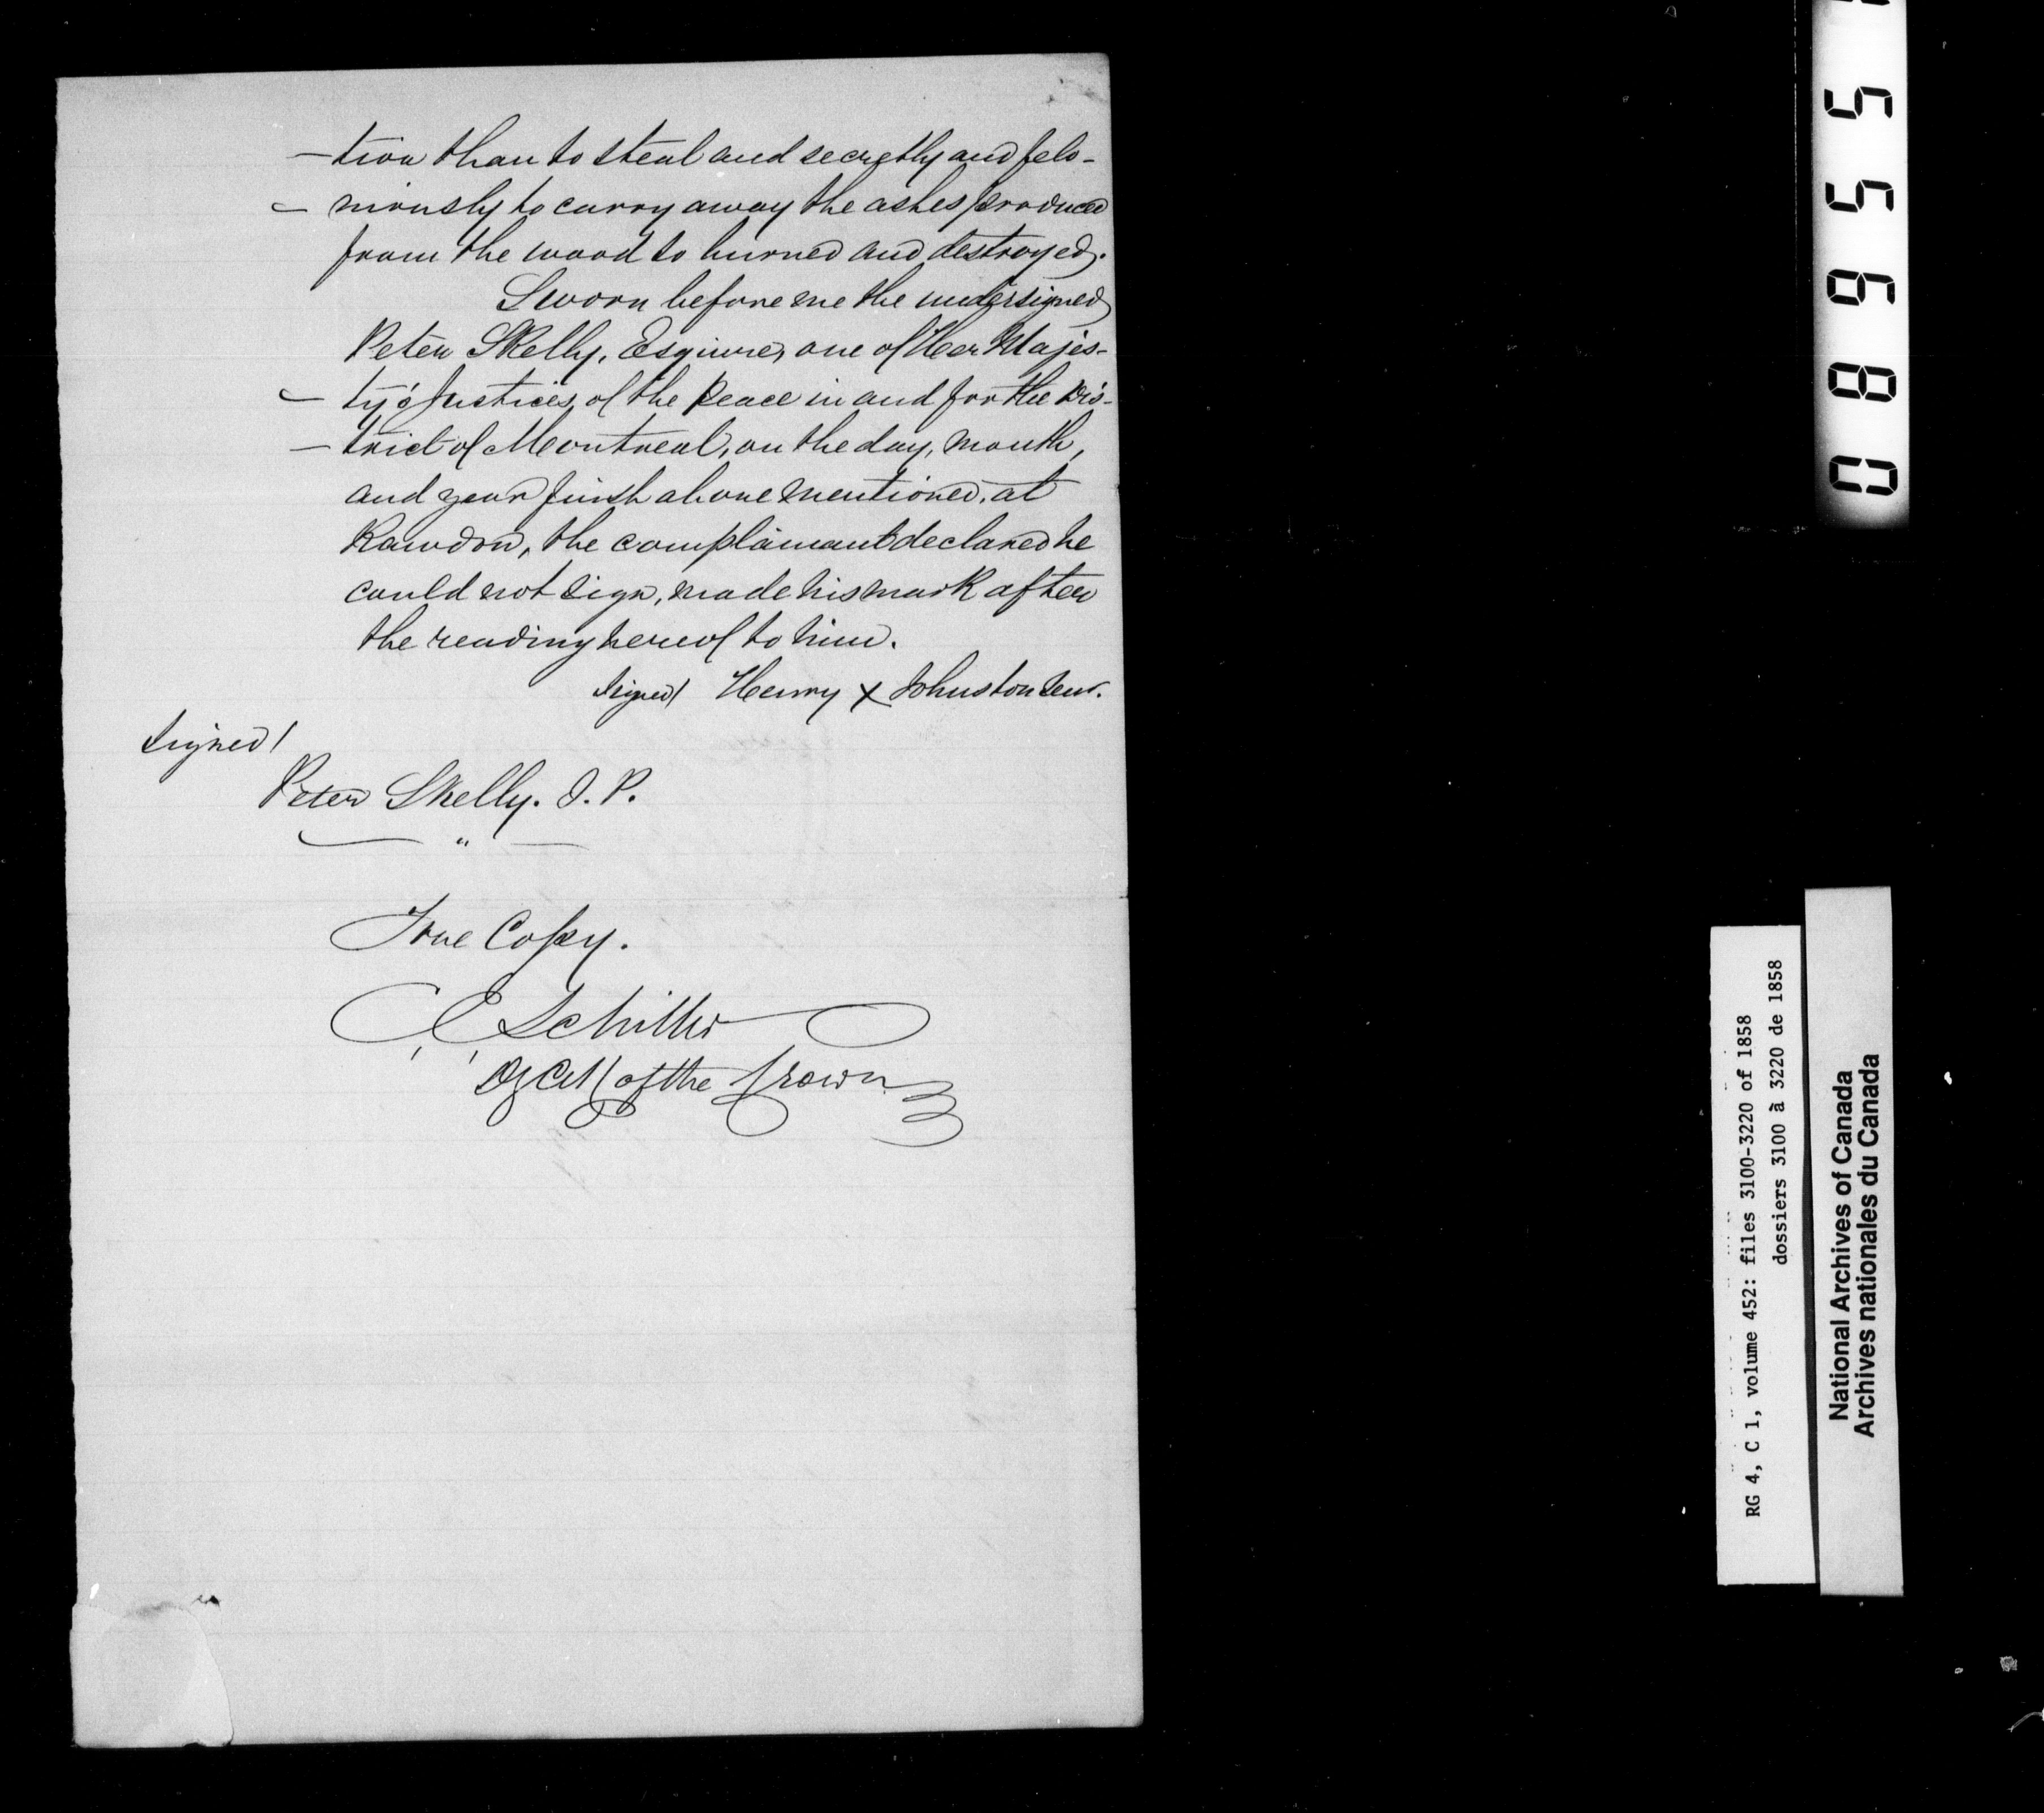 -tion than to steal and secretly and felo-
-niously to carry away the ashes produced
from the wood so burned and destroyed.
Sworn before me the undersigned
Peter Skelly, Esquire, one of Her Majes-
-ty's Justices of the Peace in and for the Dis-
-trict of Montreal, on the day, month,
and year first above mentioned, at
Rawdon, the complainant declared he
could not sign, made his mark after
the reading hereof to him.
Signed/ Henry X Johnston Senr.
Signed/
Peter Skelly. J. P.
"
True Copy.
C, E, Schiller
Dy Clk of the Crown
089655
RG 4, C 1, volume 452: files 3100-3220 of 1858
dossiers 3100 à 3220 de 1858
National Archives of Canada
Archives nationales du Canada